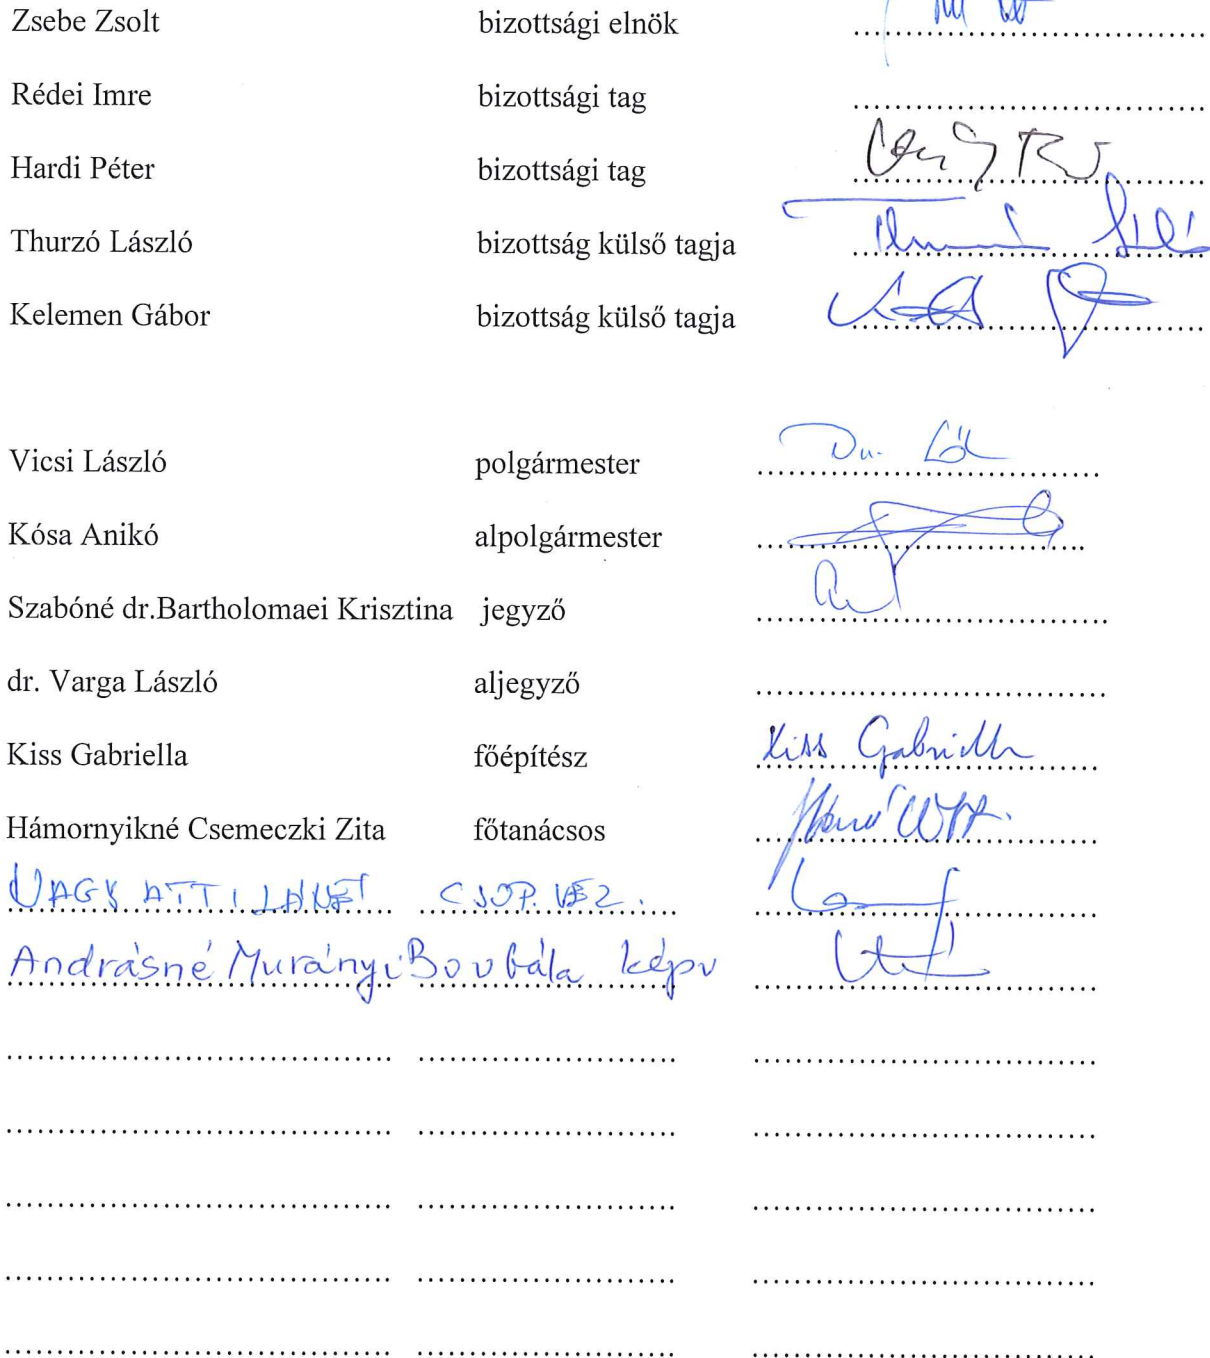 Zsebe Zsolt bizottsági elnök
Rédei Imre bizottsági tag
Hardi Péter bizottsági tag
Thurzó László bizottság külső tagja
Kelemen Gábor bizottság külső tagja
Vicsi László polgármester
Kósa Anikó alpolgármester
Szabóné dr.Bartholomaei Krisztina jegyző
dr. Varga László aljegyző
Kiss Gabriella főépítész Kiss Gabriella
Hámornyikné Csemeczki Zita főtanácsos
NAGY ATTILÁNÉ CSOP. VEZ.
Andrásné Murányi Borbála képv